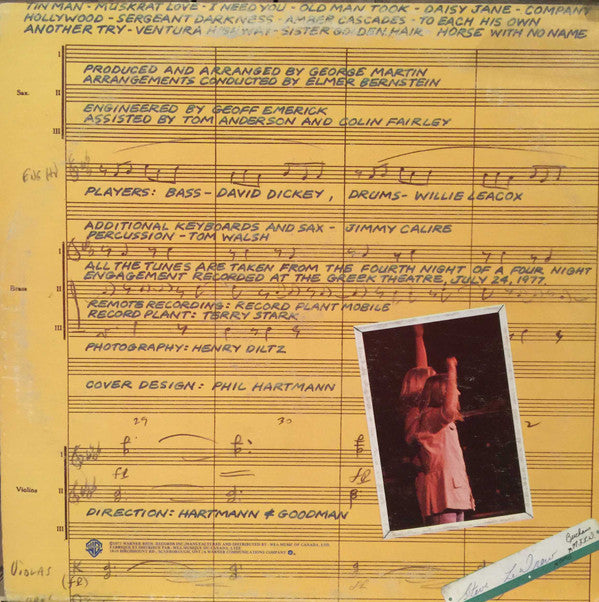 TIN MAN - MUSKRAT LOVE - I NEED YOU - OLD MAN TOOK - DAISY JANE - COMPANY
HOLLYWOOD - SERGEANT DARKNESS - AMBER CASCADES - TO EACH HIS OWN
ANOTHER TRY - VENTURA HIGHWAY - SISTER GOLDEN HAIR - HORSE WITH NO NAME
I
PRODUCED AND ARRANGED BY GEORGE MARTIN
ARRANGEMENTS CONDUCTED BY ELMER BERNSTEIN
Sax. II
ENGINEERED BY GEOFF EMERICK
ASSISTED BY TOM ANDERSON AND COLIN FAIRLEY
III
PLAYERS: BASS - DAVID DICKEY, DRUMS - WILLIE LEACOX
ADDITIONAL KEYBOARDS AND SAX - JIMMY CALIRE
PERCUSSION - TOM WALSH
I
ALL THE TUNES ARE TAKEN FROM THE FOURTH NIGHT OF A FOUR NIGHT
ENGAGEMENT RECORDED AT THE GREEK THEATRE, JULY 24, 1977.
Brass II
REMOTE RECORDING: RECORD PLANT MOBILE
RECORD PLANT: TERRY STARK
III
PHOTOGRAPHY: HENRY DILTZ
COVER DESIGN: PHIL HARTMANN
29 30 2
I
ff ff ff
Violins II
DIRECTION: HARTMANN & GOODMAN
VIOLAS
(ff)
Steve